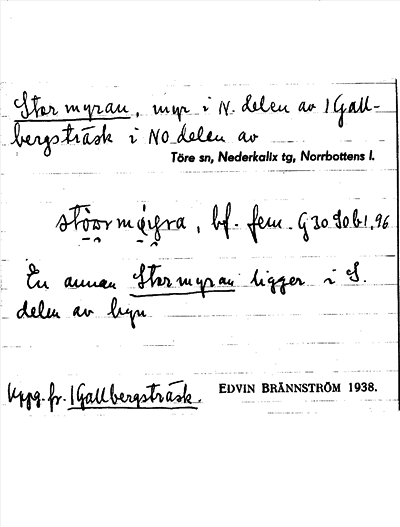 Stormyran, myr i N. delen av 1 Gall-
bergsträsk i NO delen av
Töre sn, Nederkalix tg, Norrbottens l.
bf. fem. G30 90 b1, 96
En annan Stormyran ligger i S.
delen av byn
Uppg. fr. 1 Gallbergsträsk.
EDVIN BRÄNNSTRÖM 1938.